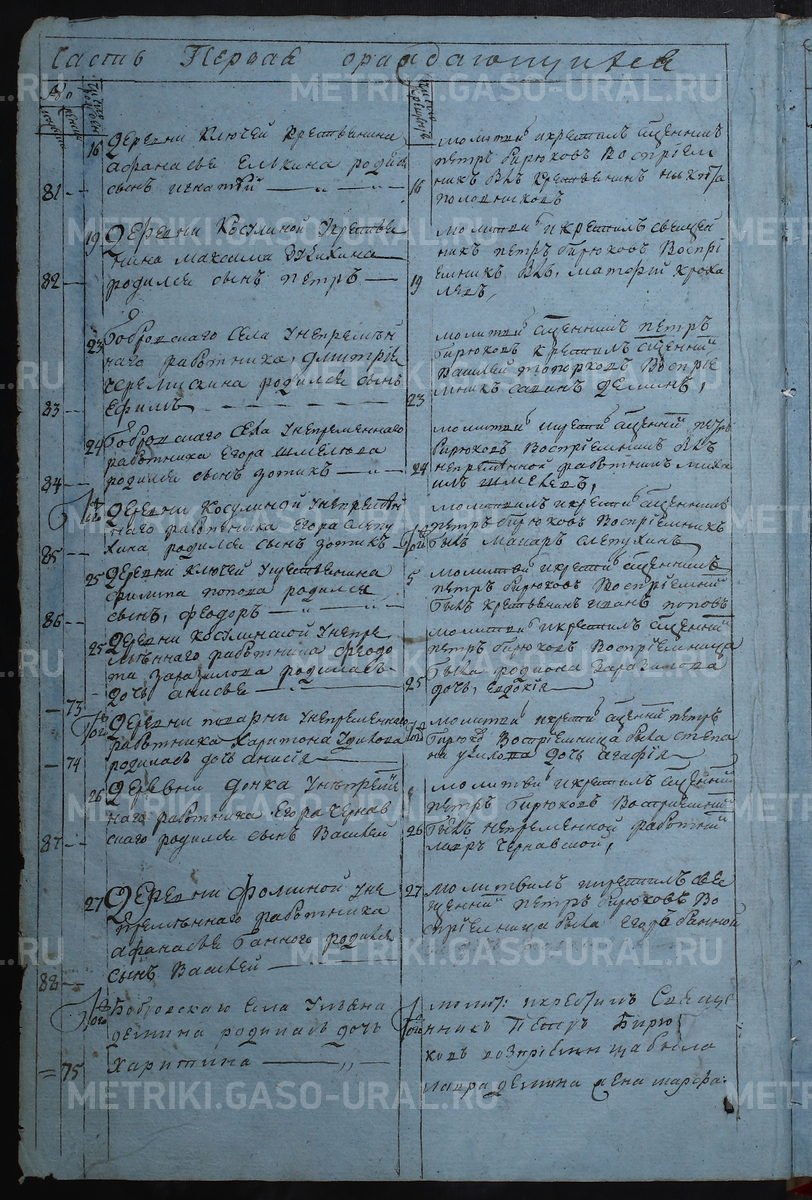 Часть Первая о раждающихся
№
16 Деревни Ключей Крестьянина
Афанасья Елькина родился
81 сынъ игнатий
молитвилъ и крестилъ священникъ
петръ бирюковъ Воспріем
никъ былъ крестьянинъ никита
16 половниковъ
19 Деревни Косулиной Укрестья
нина Максима
82 родился сынъ петръ
молитвилъ и крестилъ священ
никъ петръ бирюковъ Воспрі
емникъ былъ, матфий кроха
19 левъ,
23 Бобровскаго Села Унепремѣн
наго работника, дмитрія
Черемисина родился сынъ
83 Ефимъ
молитвилъ священникъ петръ
бирюковъ крестилъ священникъ
Василей топорковъ Воспріе
23 мникъ деминъ,
24 Бобровскаго Села Унепременнаго
работника Егора шмелева
84 родился сынъ фотикъ
молитвилъ икрестилъ священникъ петръ
бирюковъ Воспріемникъ былъ
24 непременной работникъ миха
илъ шмелевъ,
Деревни Косулиной Унепремѣн
наго работника Егора слепу
85 хина родился сынъ фотикъ
молитвилъ икрестилъ священникъ
петръ бирюковъ Воспріемникъ
былъ макаръ слепухинъ
25 Деревни Ключей Укрестьянина
филипа попова родился
86 сынъ, феодоръ
5 молитвилъ икрестилъ священникъ
петръ бирюковъ Воспріемникъ
былъ крестьянинъ иванъ поповъ
25 Деревни Косулинской Унепре
мѣннаго работника федо
та заразилова родилась
73 дочь анисья
молитвилъ икрестилъ священникъ
петръ бирюковъ Воспріемница
была родиона заразилова
25 дочь, евдокія
Деревни поварни Унепременнаго
работника Харитона Удилова
74 родилась дочь анисія
молитвилъ икрестилъ священникъ петръ
бирюковъ Воспріемница была степа
на удилова дочь агафія
26 Деревни фонка Унепремѣн
наго работника Егора Чернав
87 скаго родился сынъ Василей
молитвилъ икрестилъ священникъ
петръ бирюковъ Воспріемникъ
26 былъ непременной работникъ
лавръ чернавской,
27 Деревни Фоминой Уне
премѣннаго работника
афанасья банного родился
88 сынъ Василей
27 молитвилъ икрестилъ свя
щенникъ петръ бирюковъ Во
спріемница была Егора банной
Бобровскаго села Ульяна
демина родилась дочь
75 Харитина
молит: икрестилъ Свяще
нникъ Петръ Бирю
ковъ воспріемница была
лавра демина жена марфа.
METRIKI.GASO-URAL.RU